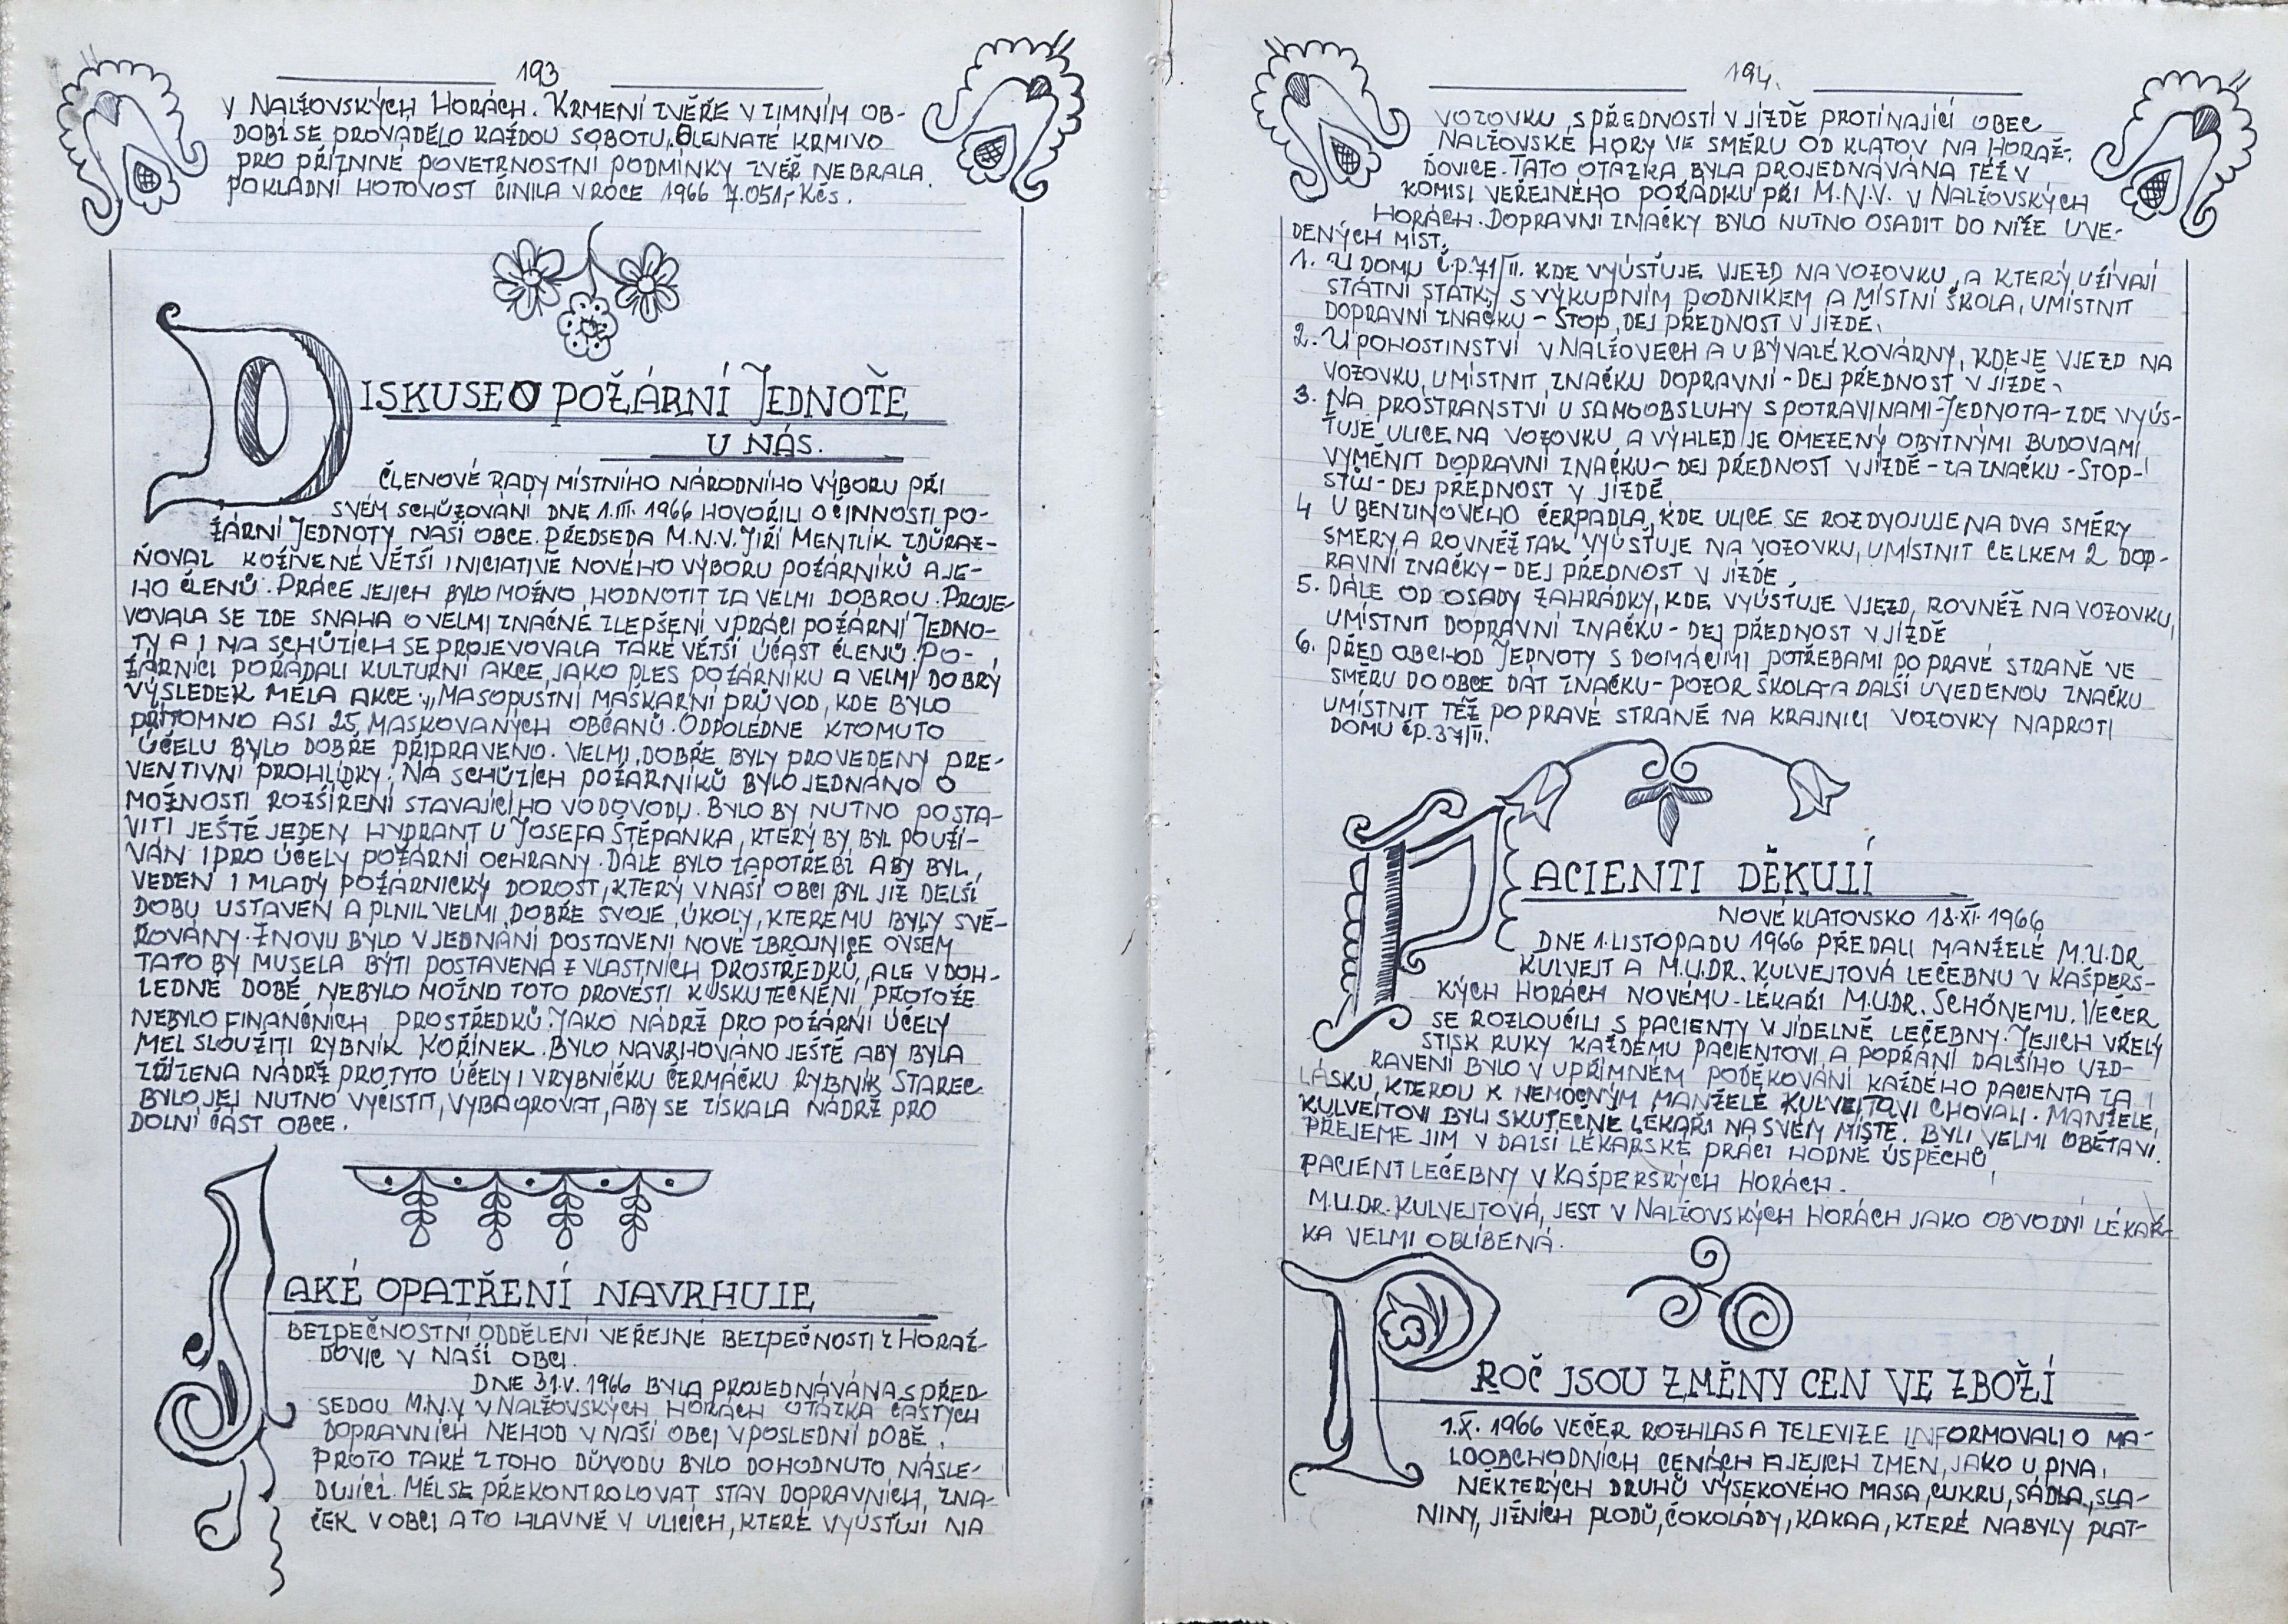 193
V NALŽOVSKÝCH HORÁCH. KRMENÍ ZVĚŘE V ZIMNÍM OB-
DOBÍ SE PROVÁDĚLO KAŽDOU SOBOTU, OLEJNATÉ KRMIVO
PRO PŘÍZNNÉ POVETRNOSTNÍ PODMÍNKY ZVĚŘ NEBRALA.
POKLADNÍ HOTOVOST ČINILA V ROCE 1966 7.051,- Kčs.
DISKUSE O POŽÁRNÍ JEDNOTĚ
U NÁS.
ČLENOVÉ RADY MÍSTNÍHO NÁRODNÍHO VÝBORU PŘI
SVÉM SCHŮZOVÁNÍ DNE 1.III. 1966 HOVOŘILI O ČINNOSTI PO-
ŽÁRNÍ JEDNOTY NAŠÍ OBCE. PŘEDSEDA M.N.V. JIŘÍ MENTLÍK ZDŮRAZ-
ŇOVAL KOŽNENÉ VĚTŠÍ INICIATIVĚ NOVÉHO VÝBORU POŽÁRNÍKŮ A JE-
HO ČLENŮ. PRÁCE JEJICH BYLO MOŽNO HODNOTIT ZA VELMI DOBROU. PROJE-
VOVALA SE ZDE SNAHA O VELMI ZNAČNÉ ZLEPŠENÍ V PRÁCI POŽÁRNÍ JEDNO-
TY A I NA SCHŮZÍCH SE PROJEVOVALA TAKÉ VĚTŠÍ ÚČAST ČLENŮ. PO-
ŽÁRNÍCI POŘÁDALI KULTURNÍ AKCE, JAKO PLES POŽÁRNÍKU A VELMI DOBRÝ
VÝSLEDEK MĚLA AKCE „MASOPUSTNÍ MAŠKARNÍ PRŮVOD, KDE BYLO
PŘÍTOMNO ASI 25 MASKOVANÝCH OBČANŮ. ODPOLEDNE KTOMUTO
ÚČELU BYLO DOBŘE PŘIPRAVENO. VELMI DOBŘE BYLY PROVEDENY PRE-
VENTIVNÍ PROHLÍDKY. NA SCHŮZÍCH POŽÁRNÍKŮ BYLO JEDNÁNO O
MOŽNOSTI ROZŠÍŘENÍ STAVAJÍCÍHO VODOVODU. BYLO BY NUTNO POSTA-
VITI JEŠTĚ JEDEN HYDRANT U JOSEFA ŠTĚPÁNKA, KTERÝ BY BYL POUŽÍ-
VÁN I PRO ÚČELY POŽÁRNÍ OCHRANY. DÁLE BYLO ZAPOTŘEBÍ ABY BYL
VEDEN I MLADÝ POŽÁRNICKÝ DOROST, KTERÝ V NAŠÍ OBCI BYL JIŽ DELŠÍ
DOBU USTAVEN A PLNIL VELMI DOBŘE SVOJE ÚKOLY, KTERÉMU BYLY SVĚ-
ŘOVÁNY. ZNOVU BYLO V JEDNÁNÍ POSTAVENÍ NOVÉ ZBROJNICE OVŠEM
TATO BY MUSELA BÝTI POSTAVENA Z VLASTNÍCH PROSTŘEDKŮ, ALE V DOH-
LEDNÉ DOBĚ NEBYLO MOŽNO TOTO PROVÉSTI K USKUTEČNĚNÍ, PROTOŽE
NEBYLO FINANČNÍCH PROSTŘEDKŮ. JAKO NÁDRŽ PRO POŽÁRNÍ ÚČELY
MĚL SLOUŽITI RYBNÍK KOŘÍNEK. BYLO NAVRHOVÁNO JEŠTĚ ABY BYLA
ZŘÍZENA NÁDRŽ PRO TYTO ÚČELY I V RYBNÍČKU ČERMÁČKU RYBNÍK STAREC
BYLO JEJ NUTNO VYČISTIT, VYBAGROVAT, ABY SE ZÍSKALA NÁDRŽ PRO
DOLNÍ ČÁST OBCE.
JAKÉ OPATŘENÍ NAVRHUJE
BEZPEČNOSTNÍ ODDĚLENÍ VEŘEJNÉ BEZPEČNOSTI Z HORAŽ-
ĎOVIC V NAŠÍ OBCI.
DNE 31.V. 1966 BYLA PROJEDNÁVÁNA S PŘED
SEDOU M.N.V. V NALŽOVSKÝCH HORÁCH OTÁZKA ČASTÝCH
DOPRAVNÍCH NEHOD V NAŠÍ OBCI V POSLEDNÍ DOBĚ.
PROTO TAKÉ Z TOHO DŮVODU BYLO DOHODNUTO NÁSLE-
DUJÍCÍ. MĚL SE PŘEKONTROLOVAT STAV DOPRAVNÍCH, ZNA-
ČEK V OBCI A TO HLAVNĚ V ULICÍCH, KTERÉ VYÚSŤUJÍ NA
194.
VOZOVKU S PŘEDNOSTÍ V JÍZDĚ PROTÍNAJÍCÍ OBEC
NALŽOVSKÉ HORY VE SMĚRU OD KLATOV NA HORAŽ-
ĎOVICE. TATO OTÁZKA BYLA PROJEDNÁVÁNA TÉŽ V
KOMISI VEŘEJNÉHO POŘÁDKU PŘI M.N.V. V NALŽOVSKÝCH
HORÁCH. DOPRAVNÍ ZNAČKY BYLO NUTNO OSADIT DO NÍŽE UVE-
DENÝCH MÍST.
1. U DOMU Č.P. 71/II. KDE VYÚSŤUJE VJEZD NA VOZOVKU, A KTERÝ UŽÍVAJÍ
STÁTNÍ STATKY S VÝKUPNÍM PODNIKEM A MÍSTNÍ ŠKOLA, UMÍSTNIT
DOPRAVNÍ ZNAČKU - STOP, DEJ PŘEDNOST V JÍZDĚ.
2. U POHOSTINSTVÍ V NALŽOVECH A U BÝVALÉ KOVÁRNY, KDE JE VJEZD NA
VOZOVKU, UMÍSTNIT ZNAČKU DOPRAVNÍ - DEJ PŘEDNOST V JÍZDĚ.
3. NA PROSTRANSTVÍ U SAMOOBSLUHY S POTRAVINAMI - JEDNOTA - ZDE VYÚS-
ŤUJE ULICE NA VOZOVKU A VÝHLED JE OMEZENÝ OBYTNÝMI BUDOVAMI
VYMĚNIT DOPRAVNÍ ZNAČKU - DEJ PŘEDNOST V JÍZDĚ - ZA ZNAČKU - STOP -
STŮJ - DEJ PŘEDNOST V JÍZDĚ
4 U BENZINOVÉHO ČERPADLA, KDE ULICE SE ROZDVOJUJE NA DVA SMĚRY
SMĚRY A ROVNĚŽ TAK VYÚSŤUJE NA VOZOVKU, UMÍSTNIT CELKEM 2 DOP-
RAVNÍ ZNAČKY - DEJ PŘEDNOST V JÍZDĚ
5. DÁLE OD OSADY ZAHRÁDKY, KDE VYÚSŤUJE VJEZD, ROVNĚŽ NA VOZOVKU,
UMÍSTNIT DOPRAVNÍ ZNAČKU - DEJ PŘEDNOST V JÍZDĚ
6. PŘED OBCHOD JEDNOTY S DOMÁCÍMI POTŘEBAMI PO PRAVÉ STRANĚ VE
SMĚRU DO OBCE DÁT ZNAČKU - POZOR ŠKOLA - A DALŠÍ UVEDENOU ZNAČKU
UMÍSTNIT TÉŽ PO PRAVÉ STRANĚ NA KRAJNICI VOZOVKY NAPROTI
DOMU ČP. 37/II.
PACIENTI DĚKUJÍ
NOVÉ KLATOVSKO 18.XI. 1966
DNE 1. LISTOPADU 1966 PŘEDALI MANŽELÉ M.U.DR
KULVEJT A M.U.DR. KULVEJTOVÁ LÉČEBNU V KAŠPERS-
KÝCH HORÁCH NOVÉMU - LÉKAŘI M.U.DR. SCHÖNEMU. VEČER
SE ROZLOUČILI S PACIENTY V JÍDELNĚ LÉČEBNY. JEJICH VŘELÝ
STISK RUKY KAŽDÉMU PACIENTOVI A POPŘÁNÍ DALŠÍHO UZD-
RAVENÍ BYLO V UPŘÍMNÉM PODĚKOVÁNÍ KAŽDÉHO PACIENTA ZA
LÁSKU, KTEROU K NEMOCNÝM MANŽELÉ KULVEJTOVI CHOVALI. MANŽELÉ,
KULVEJTOVI BYLI SKUTEČNĚ LÉKAŘI NA SVÉM MÍSTĚ. BYLI VELMI OBĚTAVÍ.
PŘEJEME JIM V DALŠÍ LÉKAŘSKÉ PRÁCI HODNĚ ÚSPĚCHŮ,
PACIENT LÉČEBNY V KAŠPERSKÝCH HORÁCH.
M.U.DR. KULVEJTOVÁ, JEST V NALŽOVSKÝCH HORÁCH JAKO OBVODNÍ LÉKAŘ-
KA VELMI OBLÍBENÁ.
PROČ JSOU ZMĚNY CEN VE ZBOŽÍ
1.X. 1966 VEČER ROZHLAS A TELEVIZE INFORMOVALI O MA-
LOOBCHODNÍCH CENÁCH A JEJICH ZMĚN, JAKO U PIVA,
NĚKTERÝCH DRUHŮ VÝSEKOVÉHO MASA, CUKRU, SÁDLA, SLA-
NINY, JIŽNÍCH PLODŮ, ČOKOLÁDY, KAKAA, KTERÉ NABYLY PLAT-